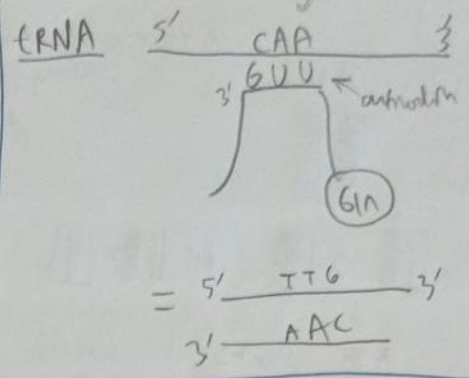 tRNA 5' CAA 3'
3' GUU ← anticodon
Gln
= 5' TTG 3'
3' AAC